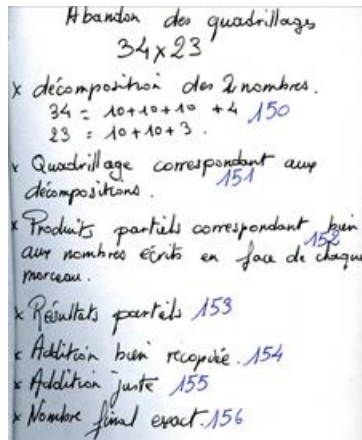 Abandon des quadrillages
34 x 23
x décomposition des 2 nombres.
34 = 10+10+10 +4 150
23 = 10+10+3.
x Quadrillage correspondant aux
décompositions. 151
x Produits partiels correspondant bien
aux nombres écrits en face de chaque 152
morceau.
x Résultats partiels 153
x Addition bien recopiée. 154
x Addition juste 155
x Nombre final exact. 156